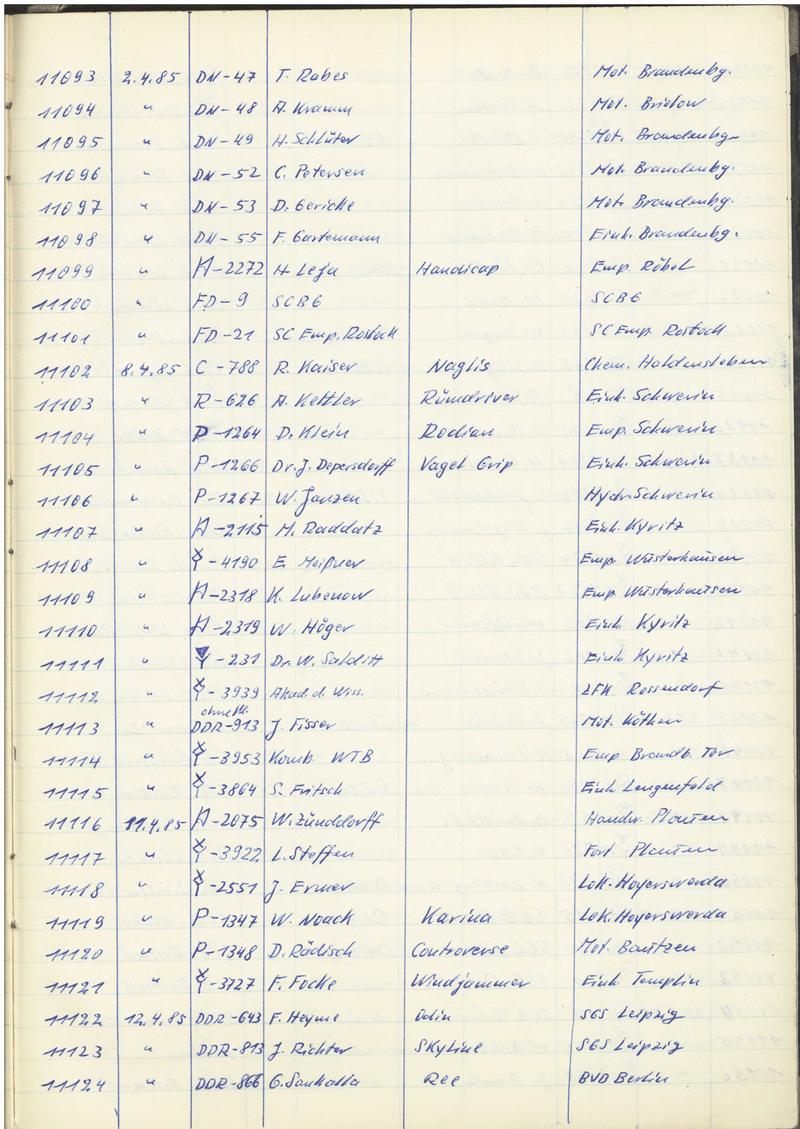 11093 2.4.85 DN-47 T. Rabes Mot. Brandenbg.
11094 " DN-48 A. Kramm Mot. Brielow
11095 " DN-49 H. Schlüter Mot. Brandenbg.
11096 " DN-52 C. Petersen Mot. Brandenbg.
11097 " DN-53 D. Gericke Mot. Brandenbg.
11098 " DN-55 F. Gartemann Einh. Brandenbg.
11099 " H-2272 H. Leja Handicap Emp. Röbel
11100 " FD-9 SCBG SCBG
11101 " FD-21 SC Emp. Rostock SC Emp. Rostock
11102 8.4.85 C-788 R. Kaiser Naglis Chem. Haldensleben
11103 " R-626 A. Kettler Rümdriver Einh. Schwerin
11104 " P-1264 D. Klein Rodian Emp. Schwerin
11105 " P-1266 Dr. J. Depersdorff Vagel Grip Einh. Schwerin
11106 " P-1267 W. Janzen Hydr. Schwerin
11107 " H-2115 M. Raddatz Einh. Kyritz
11108 " -4190 E. Meißner Emp. Wusterhausen
11109 " H-2318 K. Lubenow Emp. Wusterhausen
11110 " H-2319 W. Höger Einh. Kyritz
11111 " -231 Dr. W. Salditt Einh. Kyritz
11112 " -3939 Akad. d. Wiss. ZFK Rossendorf
ohne
11113 " DDR-913 J. Fisser Mot. Köthen
11114 " -3953 Komb. WTB Emp. Brandb. Tor
11115 " -3864 S. Fritsch Einh. Lengenfeld
11116 11.4.85 H-2075 W. Zünddorff Handw. Plauen
11117 " -3922 L. Steffen Fort. Plauen
11118 " -2551 J. Ermer Lok. Hoyerswerda
11119 " P-1347 W. Noack Karina Lok. Hoyerswerda
11120 " P-1348 D. Rädisch Controverse Mot. Bautzen
11121 " -3727 F. Focke Windjammer Einh. Templin
11122 12.4.85 DDR-643 F. Heyme Odin SGS Leipzig
11123 " DDR-813 J. Richter Skyline SGS Leipzig
11124 " DDR-866 G. Sankalla Ree BVB Berlin